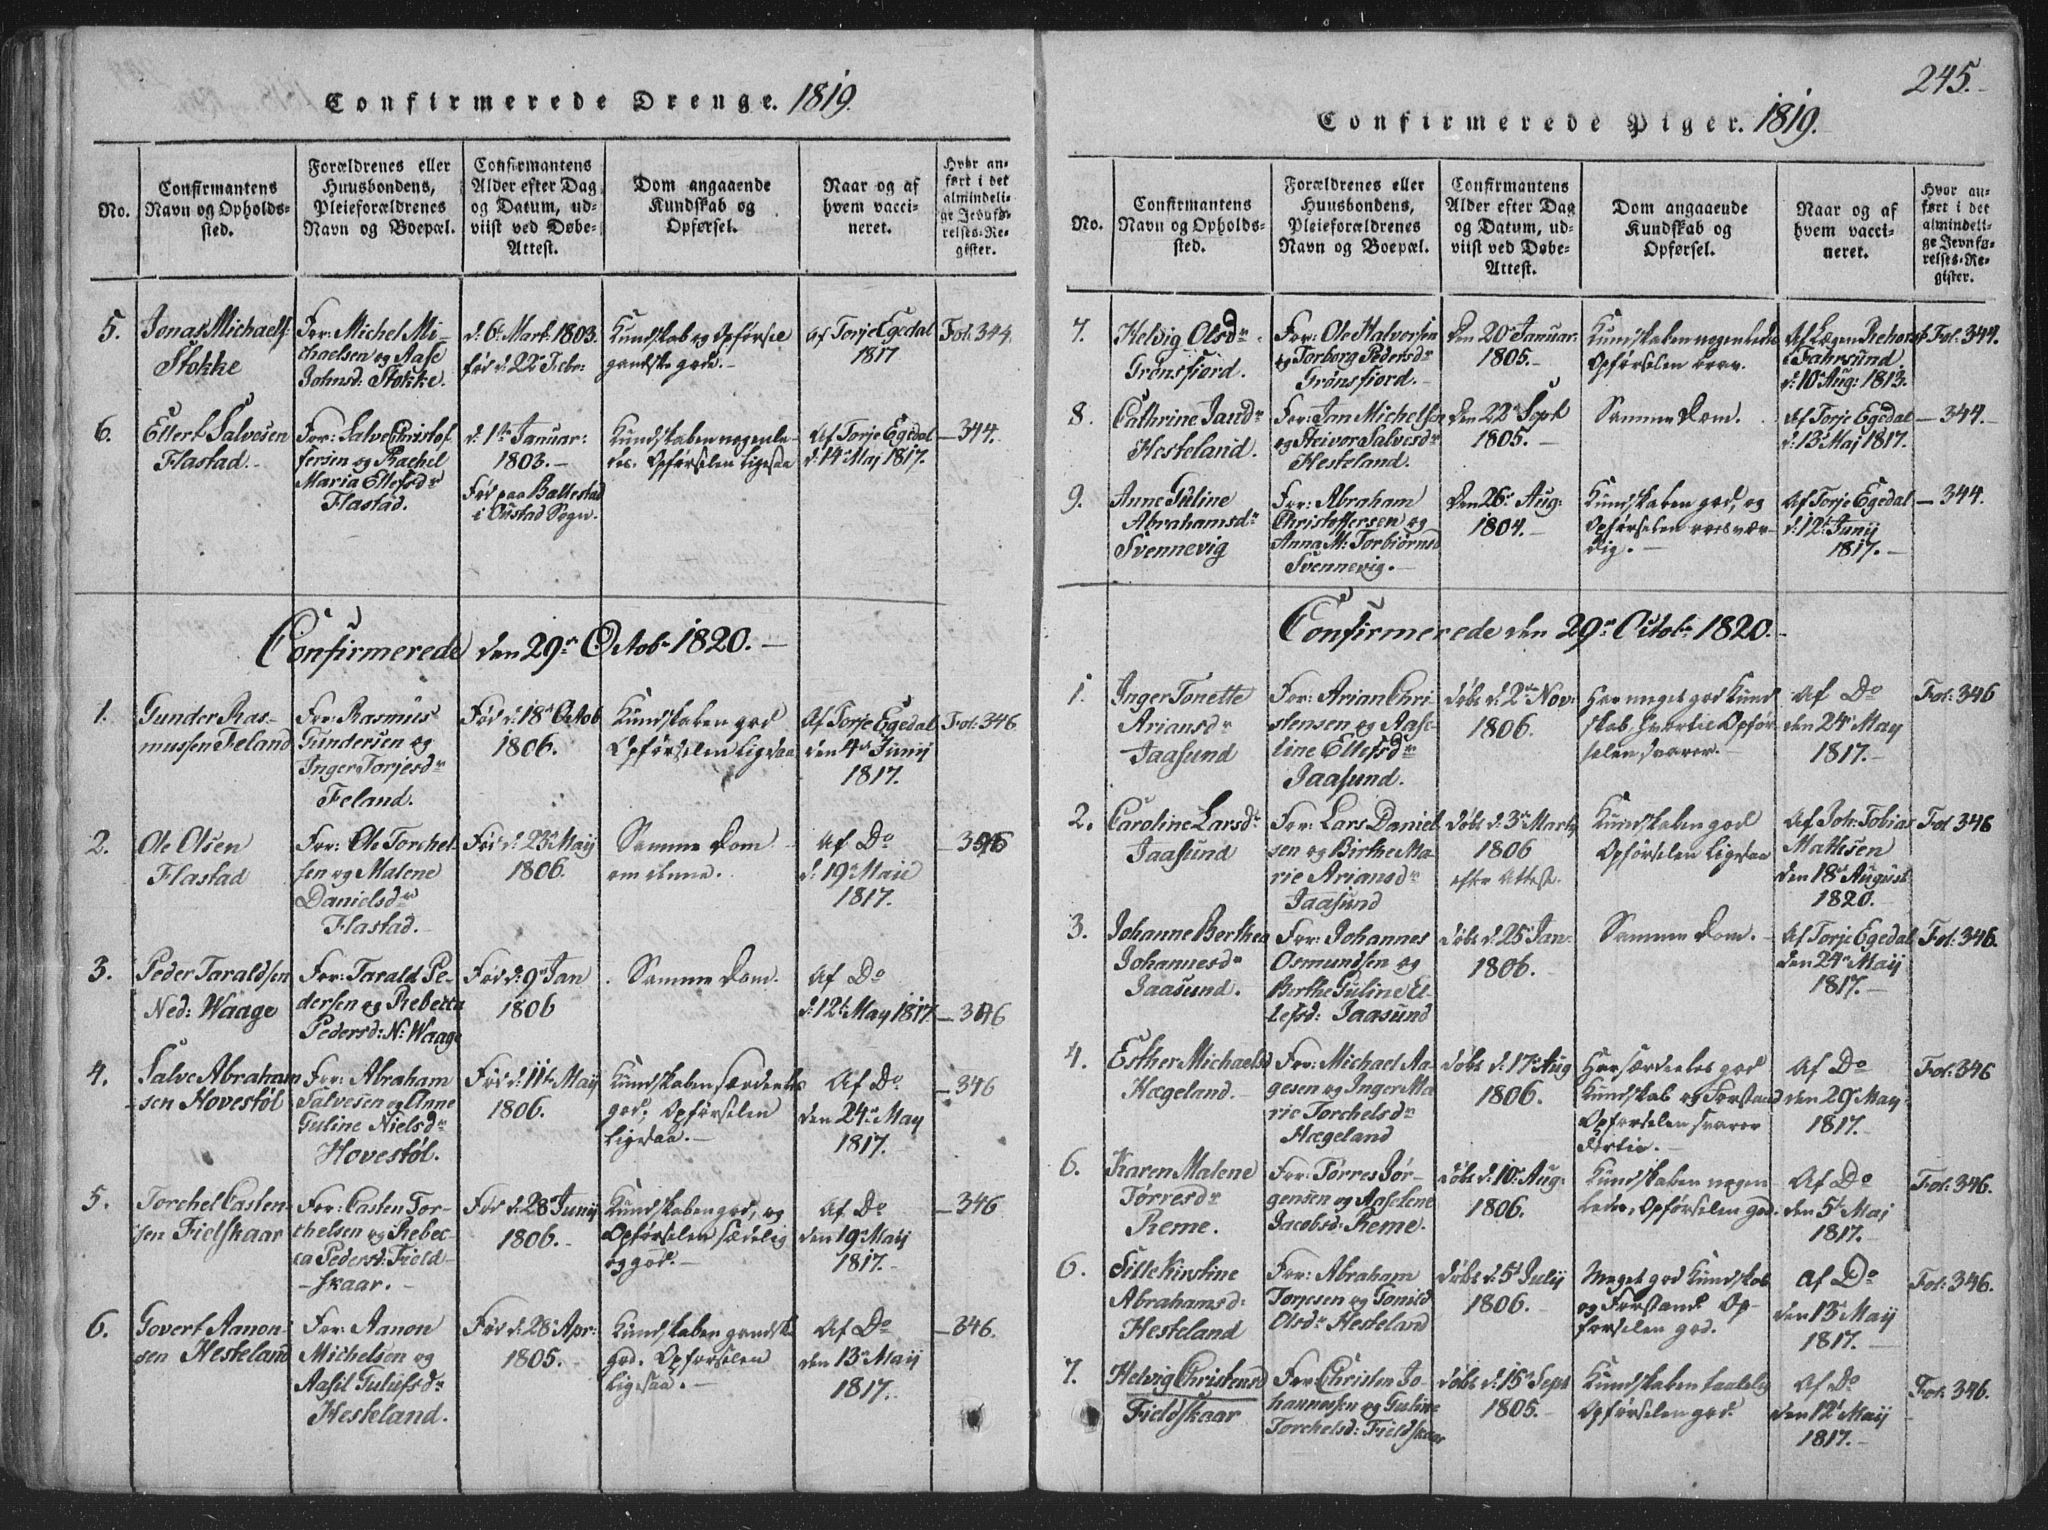 Confirmerede Drenge. 1819.
No.
Confirmantens
Navn og Opholds-
sted.
Forældrenes eller
Huusbondens,
Pleieforældrenes
Navn og Boepæl.
Confirmantens
Alder efter Dag
og Datum, ud-
viist ved Døbe-
Attest.
Dom angaaende
Kundskab og
Opførsel.
Naar og af
hvem vacci-
neret.
Hvor an-
ført i det
almindeli-
ge Jevnfø-
relses-Re-
gister.
5.
Jonas Michaels:
Stokke
For: Michel Mi-
chaelsen og Aase
Johnsd: Stokke.
d. 6t Mart. 1803.
fød d: 22r Febr:
Kundskab og Opførsel
gandske gode.-
af Torje Egedal
1817
Fol. 344.
6.
Ellert Salvesen
Flastad.
For: Salve Christof
fersen og Rachel
Maria Ellefsdr
Flastad.
d. 1te Januar:
1803.-
Fød paa Ballestad
i Sogn.
Kundskaben nogenle-
des. Opførselen ligesaa
Af Torje Egedal
d: 14r Maj 1817.
- 344.
Confirmerede den 29r Octobr 1820.-
1.
Gunder Ras-
mussen Feland
For: Rasmus
Gundersen og
Inger Torjesdr
Feland.
Fød d: 18r Octob
1806.
Kundskaben god
Opførselen ligesaa
Af Torje Egedal
den 4de Junij
1817.
Fol: 346.
2.
Ole Olsen
Flastad
For: Ole Torchel
sen og Malene
Danielsdr
Flastad.
Fød d: 23r Maij
1806.
Samme Dom
om denne.
Af Do
d: 19r Maii
1817.
- 346
3.
Peder Taraldsen
Ned: Waage
For: Tarald Pe-
dersen og Rebecca
Pedersd: N: Waage
Fød d: 9r Jan
1806
Samme Dom.
Af Do
d: 12t May 1817.
- 346
4.
Salve Abraham
sen Hovestøl
For: Abraham
Salvesen og Anne
Guline Nielsdr
Hovestøl.
Fød d: 11te Maij
1806.
Kundskaben særdeeles
god; Opførselen
ligesaa.-
Af Do
den 24r May
1817.-
- 346
5.
Torchel Casten
sen Fielskaar
For: Casten Tor-
chelsen og Rebec-
ca Pedersd: Field-
skaar.-
Fød d: 28r Junij
1806.
Kundskaben god, og
Opførselen sædelig
og god.-
Af Do
den 19r Maij
1817.-
- 346
6.
Govert Aanon-
sen Hesteland
For: Aanon
Michelsen og
Aasil Gulufsdr
Hesteland.
Fød d: 28r Apr:
1805.-
Kundskaben gandske
god. Opførselen
ligesaa.-
Af Do
den 13r Maij
1817.-
- 346.
245.
Confirmerede Piger. 1819.
No.
Confirmantens
Navn og Opholds-
sted.
Forældrenes eller
Huusbondens,
Pleieforældrenes
Navn og Boepæl.
Confirmantens
Alder efter Dag
og Datum, ud-
viist ved Døbe-
Attest.
Dom angaaende
Kundskab og
Opførsel.
Naar og af
hvem vacci-
neret.
Hvor an-
ført i det
almindeli-
ge Jevnfø-
relses-Re-
gister.
7.
Helvig Olsdr
Grønsfiord.
For: Ole Halvorsen
og Torborg Pedersdr
Grønsfjord.
Den 20r Januar
1805.-
Kundskaben nogenledes
Opførselen brav.-
Af Lægen
i Fahrsund
d: 10r Aug: 1813.
Fol: 344.
8.
Cathrine Jansdr
Hesteland.
For: Jan Michelsen
og Steivor Salvesdr
Hesteland.
Den 22r Sept
1805.-
Samme Dom.
Af Torje Egedal
d: 13r Maj 1817.
- 344.
9.
Anne Guline
Abrahamsdr
Svennevig
For: Abraham
Christoffersen og
Anna M: Torbiørnsd
Svennevig.-
Den 26r Aug:
1804.-
Kundskaben god, og
Opførselen roesvær-
dig.-
Af Torje Egedal
d: 12t Junij
1817.-
- 344.
Confirmerede den 29r Octob: 1820.-
1.
Inger Tonette
Ariansdr
Jaasund
For: Arian Chri-
stensen og Aase-
line Ellefsdr
Jaasund.
Døbt d: 2den Nov:
1806.
Har meget god Kund
skab, hvortil Opfør-
selen svarer.-
Af Do
den 24r May
1817.-
Fol: 346
2.
Caroline Larsdr
Jaasund
For: Lars Daniel
sen og Birthe Ma-
rie Ariansdr
Jaasund
Døbt d. 3r Marts
1806
efter Attest.
Kundskaben god
Opførselen ligesaa
Af Joh: Tobias
Mathisen
den 18r August
1820.-
Fol 346
3.
Johanne Berthea
Johannesdr
Jaasund.
For: Johannes
Osmundsen og
Berthe Guline El-
lefsd: Jaasund
Døbt d: 25r Jan:
1806.
Samme Dom.-
Af Torje Egedal
den 24r Maij
1817.-
Fol: 346.
4.
Esther Michaelsd
Hægeland.
For: Michael Aa-
gesen og Inger Ma
rie Torchelsdr
Hægeland
Døbt d. 17r Aug
1806.
Har særdeeles god
Kundskab og Forstand
Opførselen svarer
dertil.
Af Do
den 29r May-
1817.-
Fol: 346
6.
Karen Malene
Tørresdr
Reme.
For: Tørres Jør-
gensen og Aaselene
Jacobsd: Reme.
Døbt d: 10r Aug:
1806.
Kundskaben nogen
ledes, Opførselen god.
Af Do
den 5t Maj
1817.-
Fol: 346.
6.
Sille Kirstine
Abrahamsd:
Hesteland
For: Abraham
Torjesen og Tonild
Olsdr Hesteland
Døbt d: 5t Julij
1806.-
Meget god Kundskab
og Forstand. Op-
førselen god.
Af Do
den 13r Maij
1817.-
Fol: 346.
7.
Helvig Christensd
Fieldskaar
For: Christen Jo-
hannessen og Guline
Torchelsd: Fieldskaar
Døbt d: 15r Sept
1805.-
Kundskaben taalelig
Opførselen god.
Af Do
den 12t Maij
1817.-
Fol: 346.